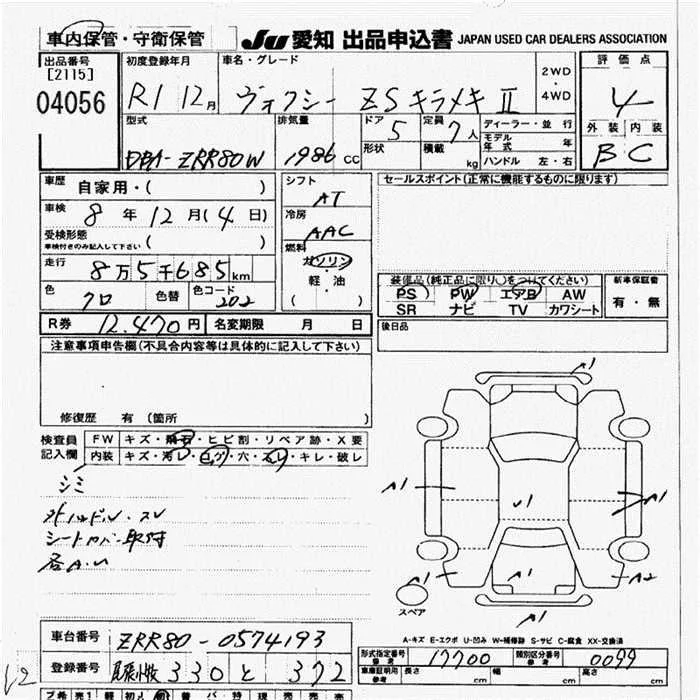 車内保管・守衛保管 JU 愛知 出品申込書 JAPAN USED CAR DEALERS ASSOCIATION
出品番号 [2115] 04056
初度登録年月 R1 12月
車名・グレード ヴォクシー ZS キラメキ II
2WD・4WD
評価点 4
外装 内装 B C
型式 DBA-ZRR80W
排気量 1986 cc
ドア 5 形状
定員 7人 積載 kg
ディーラー・並行
モデル年式 年
ハンドル 左・右
車歴 自家用・( )
車検 8年12月(4日)
受検形態 車検付きのみ記入して下さい ( )
走行 8万5千685km
色 クロ 色替 色コード 202
シフト AT
冷房 AAC
燃料 ガソリン・軽油 ( )
セールスポイント(正常に機能するものに限ります)
装備品(純正品に限り○をつけてください)
PS PW エアB AW
SR ナビ TV カワシート
新車保証書 有・無
R券 12,470円 名変期限 月 日
後日品
注意事項申告欄(不具合内容等は具体的に記入して下さい)
修復歴 有 (箇所 )
検査員記入欄 FW キズ・飛石・ヒビ割・リペア跡・X要
内装 キズ・汚レ・コゲ・穴・スレ・キレ・破レ
シミ
ハンドル・スレ
シートカバー取付
各A.U
A1
A1
A1
U1
A1
A1
A2
A1
スペア
A-キズ E-エクボ U-凹み W-補修跡 S-サビ C-腐食 XX-交換済
車台番号 ZRR80-0574193
登録番号 330 と 372
型式指定番号 参考 17700 類別区分番号 参考 0099
車庫証明用 参考 長さ cm 幅 cm 高さ cm